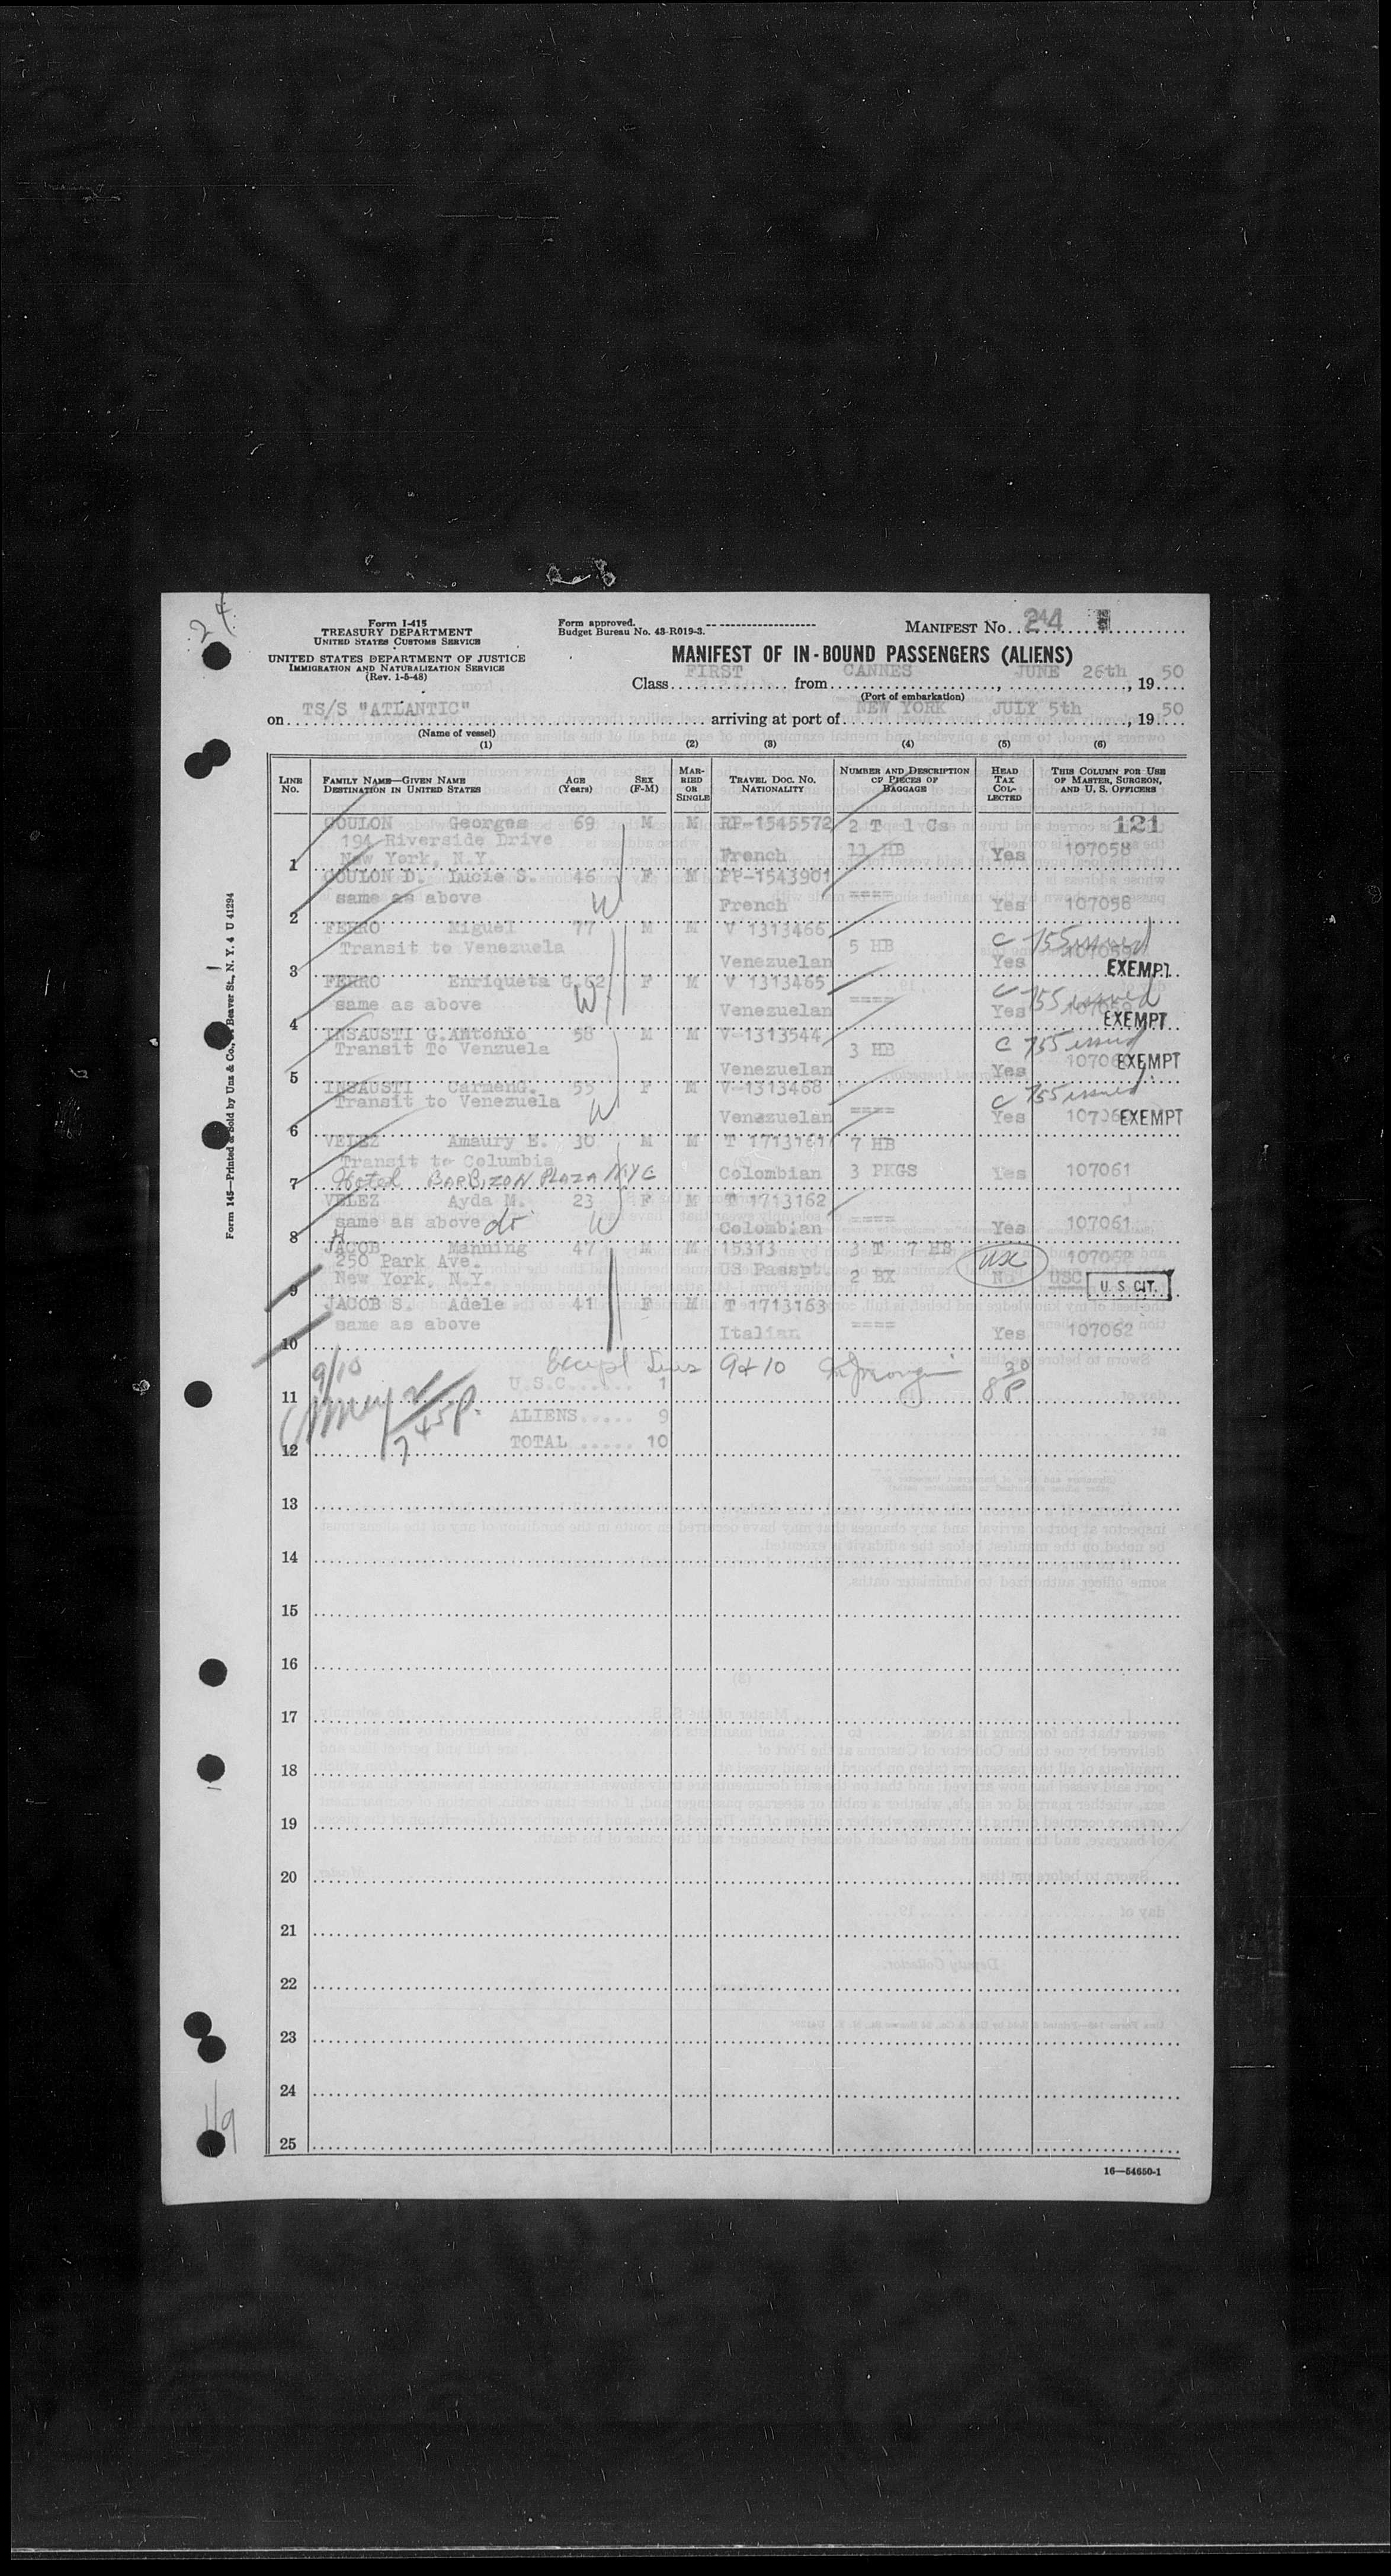 24
Form I-415
TREASURY DEPARTMENT
UNITED STATES CUSTOMS SERVICE
UNITED STATES DEPARTMENT OF JUSTICE
IMMIGRATION AND NATURALIZATION SERVICE
(Rev. 1-5-48)
Form approved.
Budget Bureau No. 43-R019-3.
MANIFEST No. 24
MANIFEST OF IN-BOUND PASSENGERS (ALIENS)
Class FIRST from CANNES, JUNE 26th, 19 50
(Port of embarkation)
on TS/S "ATLANTIC" arriving at port of NEW YORK JULY 5th, 19 50
(Name of vessel)
(1) (2) (3) (4) (5) (6)
LINE No. FAMILY NAME—GIVEN NAME DESTINATION IN UNITED STATES AGE (Years) SEX (F-M) MARRIED OR SINGLE TRAVEL DOC. NO. NATIONALITY NUMBER AND DESCRIPTION OF PIECES OF BAGGAGE HEAD TAX COLLECTED THIS COLUMN FOR USE OF MASTER, SURGEON, AND U. S. OFFICERS
GOULON Georges 69 M M PP-1545572 2 T 1 Cs 121
194 Riverside Drive
1 New York, N.Y. French 11 HB Yes 107058
GOULON D. Lucie S. 46 F M PP-1543901
2 same as above W French ==== Yes 107058
FERRO Miguel 77 M M V 1313466 C 755 issued
3 Transit to Venezuela Venezuelan 5 HB Yes EXEMPT
FERRO Enriqueta G. 62 F M V 1313465 C 755 issued
4 same as above W Venezuelan ==== Yes EXEMPT
INSAUSTI G. Antonio 58 M M V-1313544 C 755 issued
5 Transit To Venzuela Venezuelan 3 HB Yes EXEMPT
INSAUSTI CarmenG. 55 F M V-1313468 C 755 issued
6 Transit to Venezuela W Venezuelan ==== Yes EXEMPT
VELEZ Amaury E. 30 M M T 1713161 7 HB
Transit to Columbia
7 Hotel BARBIZON PLAZA NYC Colombian 3 PKGS Yes 107061
VELEZ Ayda M. 23 F M T 1713162
8 same as above do W Colombian ==== Yes 107061
JACOB Manning 47 M M 15313 3 T 7 HB USC 107062
250 Park Ave.
9 New York, N.Y. US Passpt. 2 BX No USC U. S. CIT.
JACOB S. Adele 41 F M T 1713163
10 same as above Italian ==== Yes 107062
9/10 Except Lines 9 & 10 8 30 P
11 U.S.C...... 1
7 45 P. ALIENS..... 9
12 TOTAL ..... 10
13
14
15
16
17
18
19
20
21
22
23
24
25
16—54650-1
Form 145—Printed & Sold by Unz & Co., Beaver St., N. Y. 4 U 41294
119